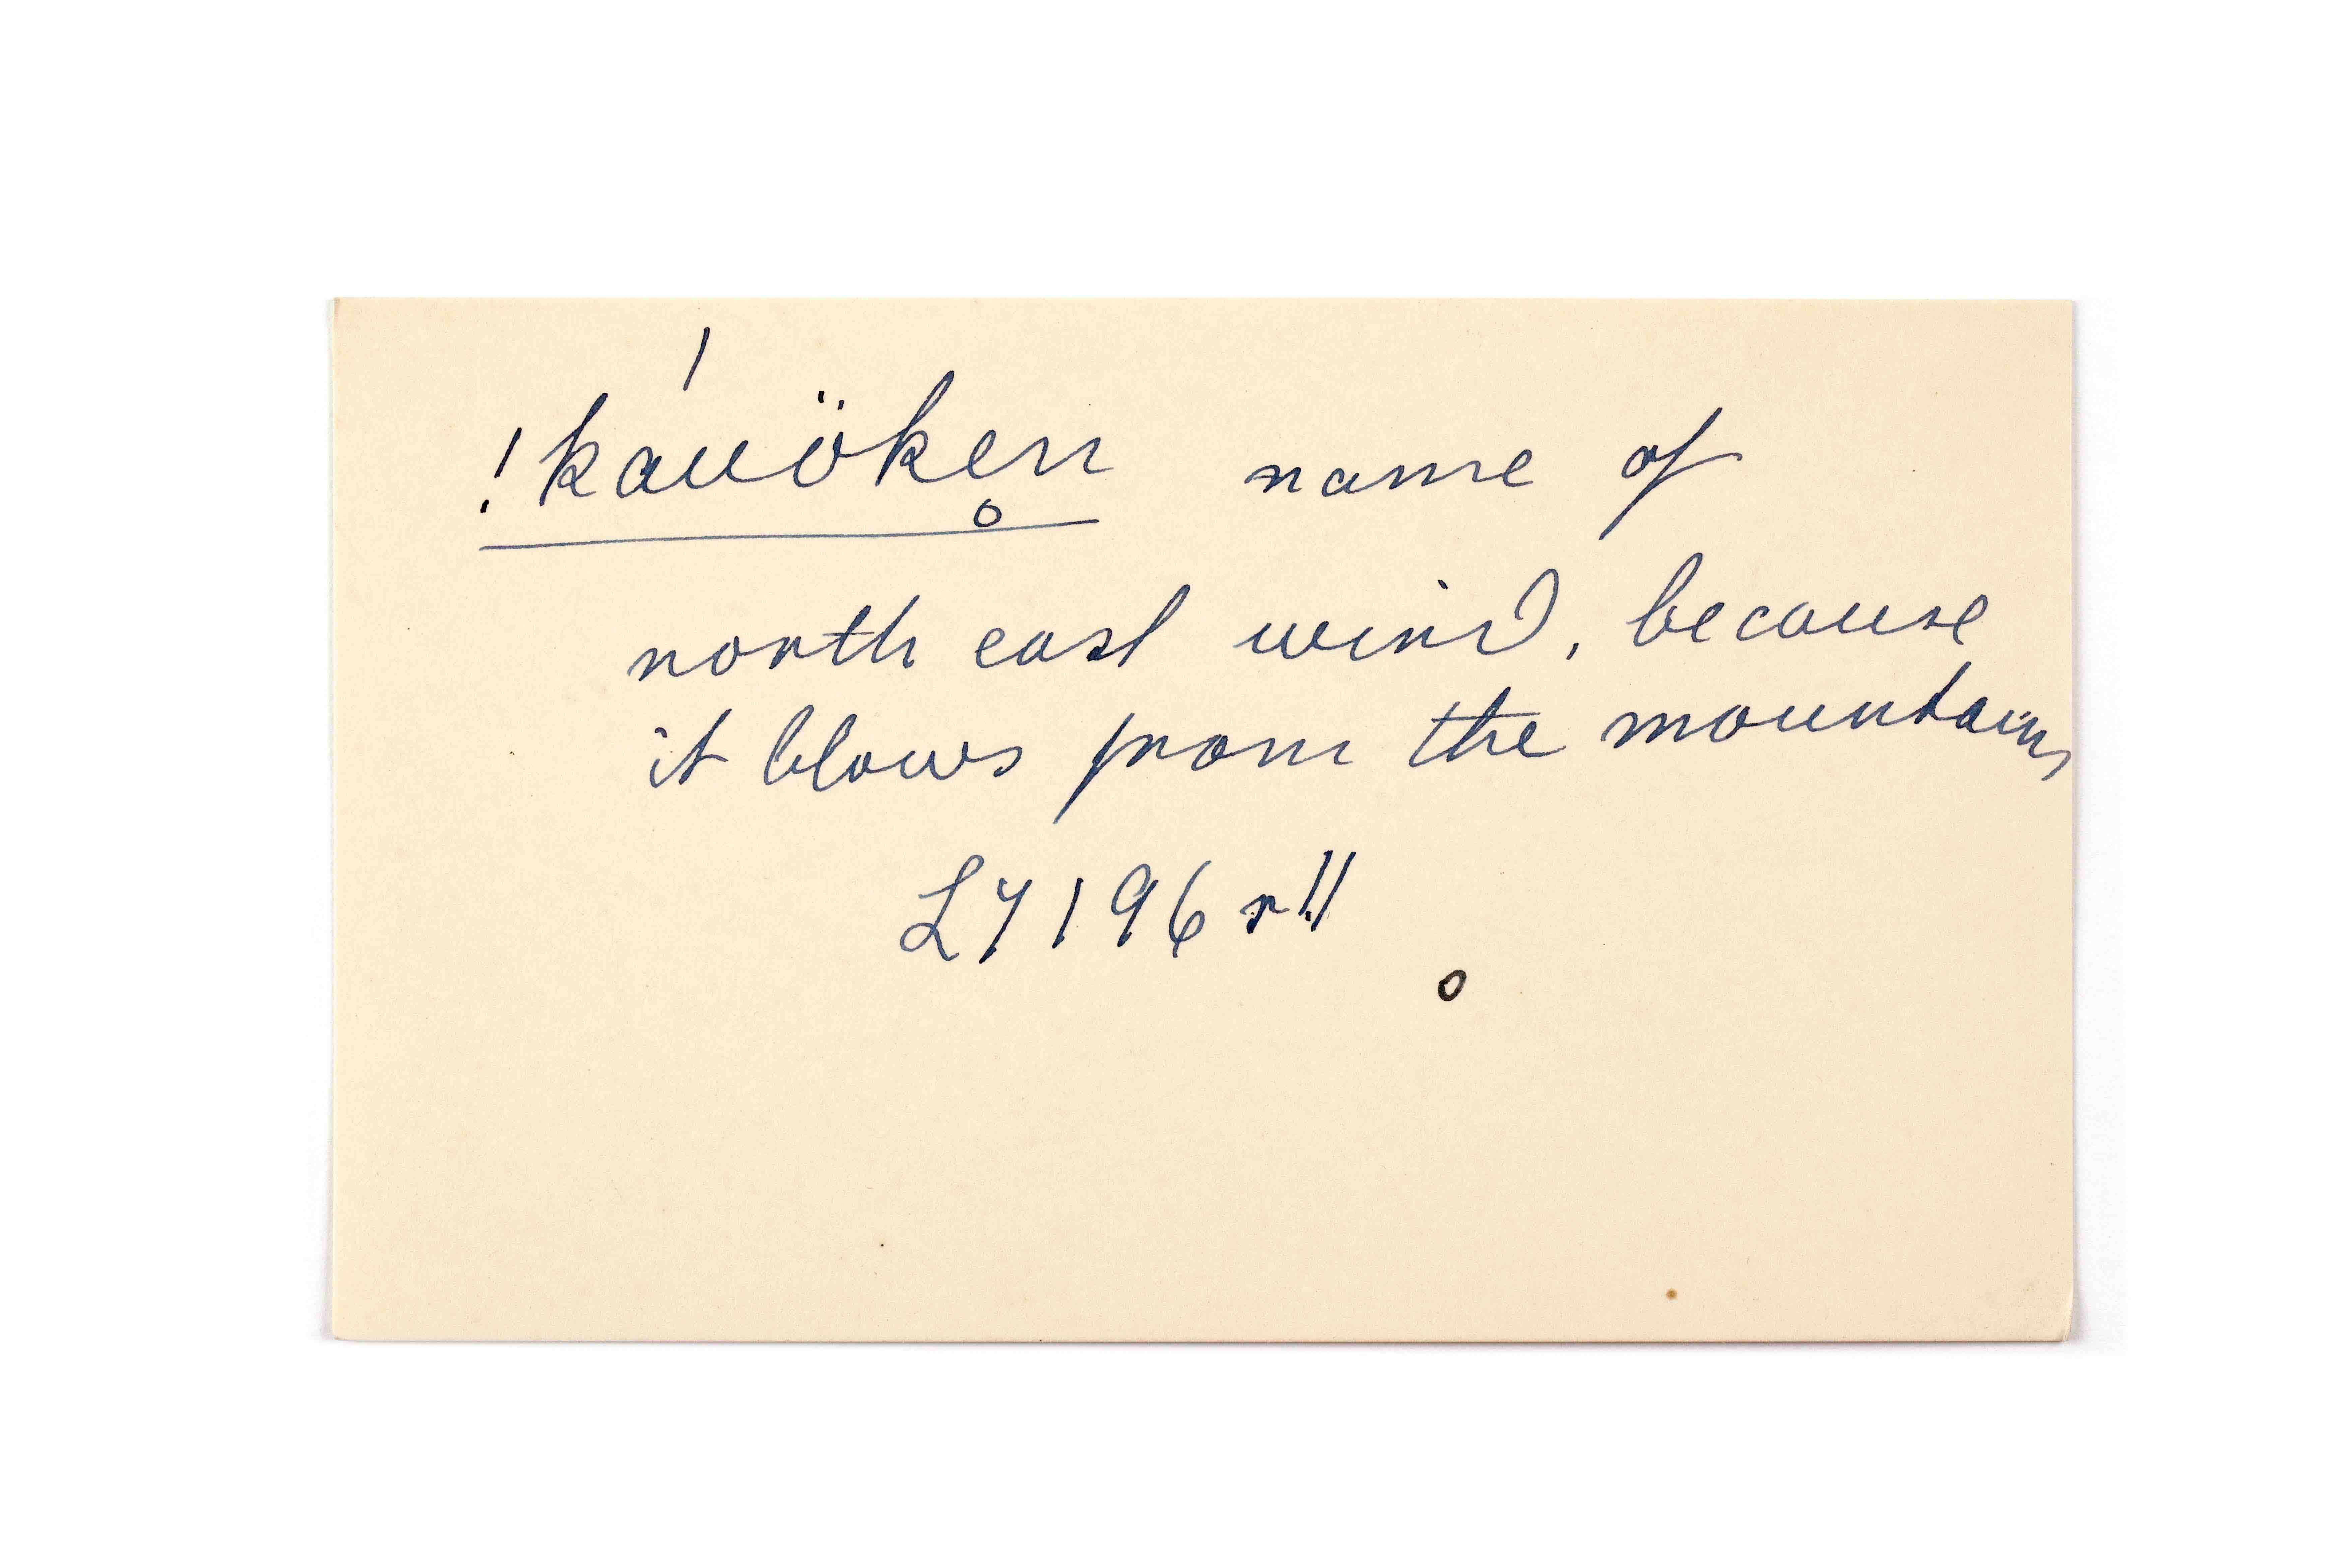 !káuöke̥n name of
north east wind, because
it blows from the mountains
L7196r!!